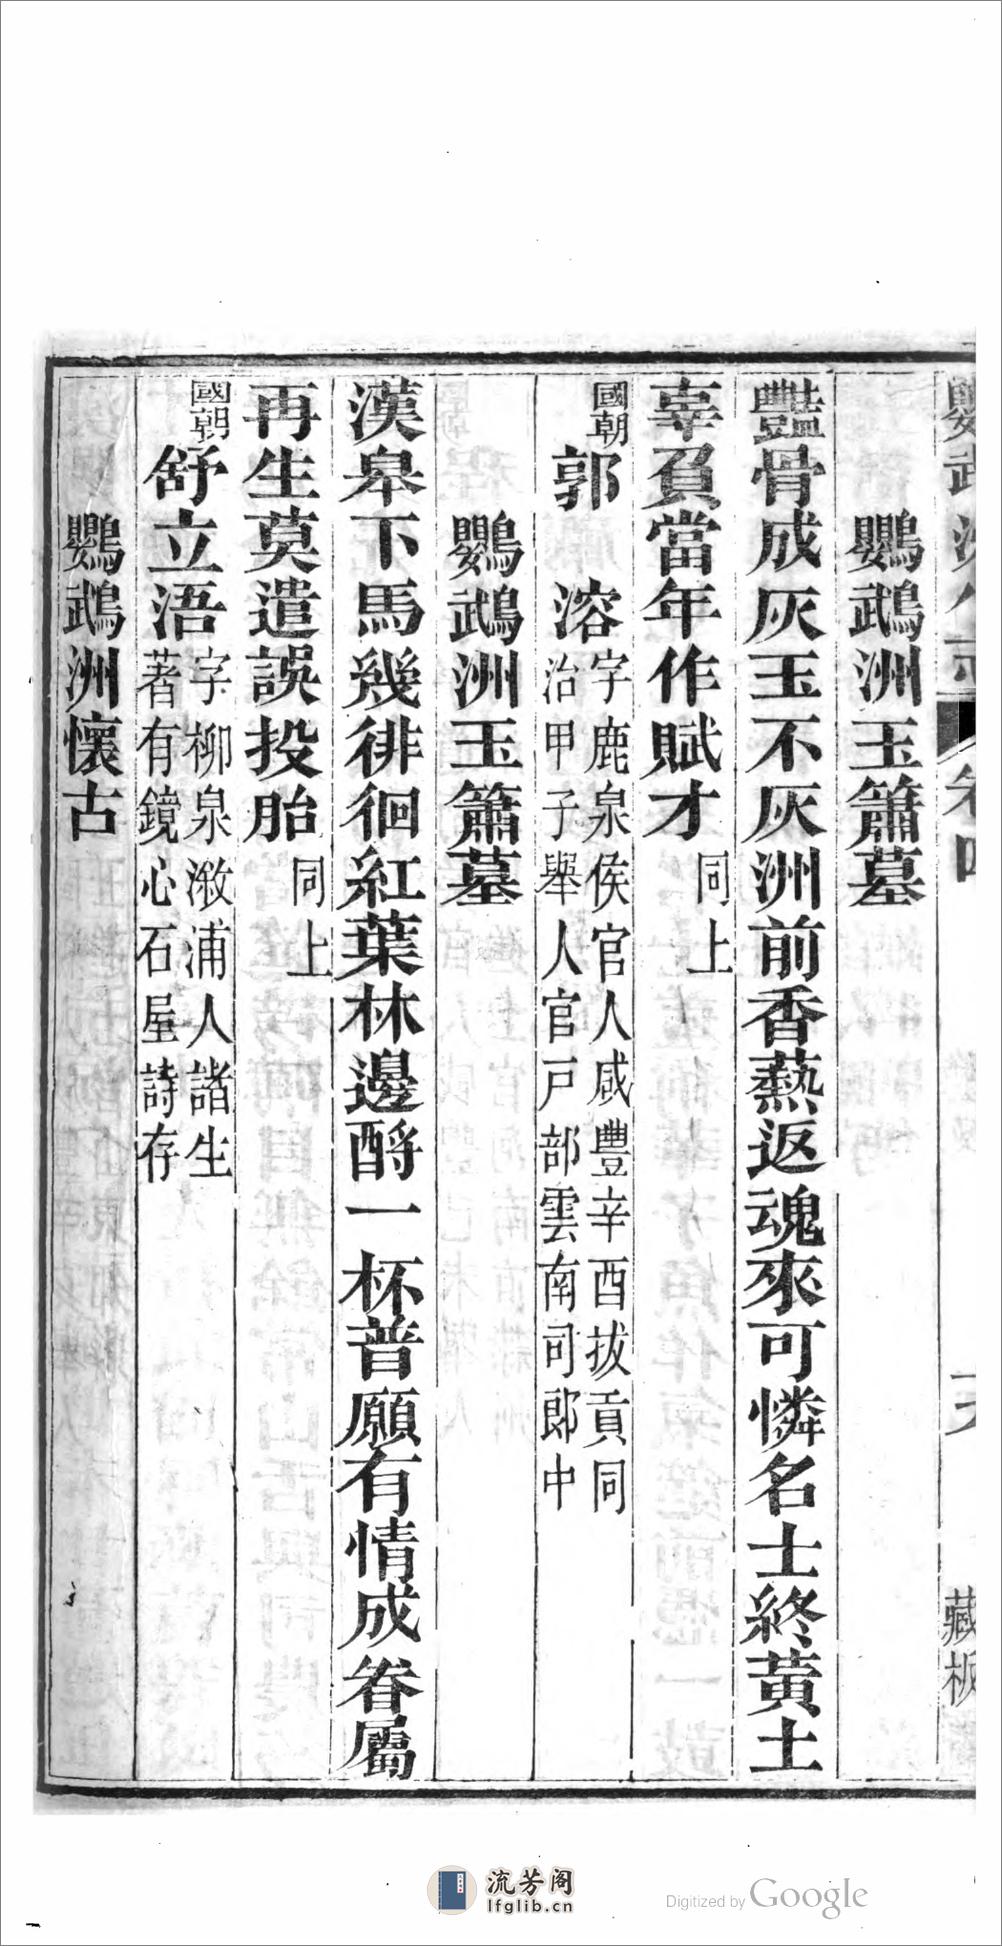 鸚鵡洲小志 卷四 藏板
鸚鵡洲玉簫墓
豔骨成灰玉不灰洲前香爇返魂來可憐名士終黃土
辜負當年作賦才同上
國朝郭溶字鹿泉侯官人咸豐辛酉拔貢同
治甲子舉人官戸部雲南司郎中
鸚鵡洲玉簫墓
漢皋下馬幾徘徊紅葉林邊酹一杯普願有情成眷屬
再生莫遣誤投胎同上
國朝舒立浯字柳泉漵浦人諸生
著有鏡心石屋詩存
鸚鵡洲懷古
流芳阁
lfglib.cn
Digitized by Google